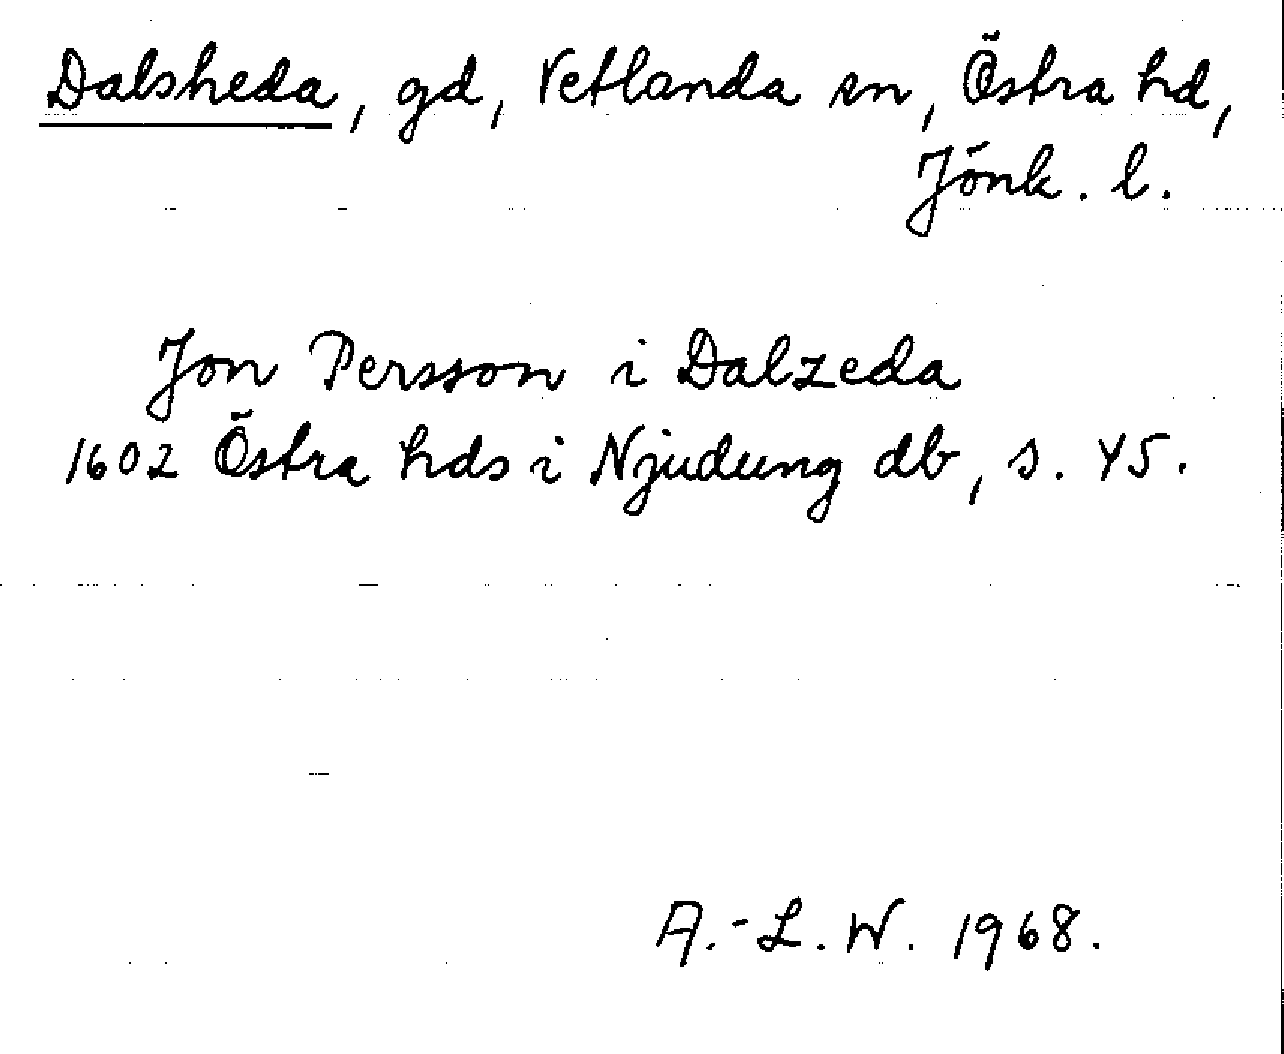 Dalsheda, gd, Vetlanda sn, Östra hd,
Jönk. l.
Jon Persson i Dalzeda
1602 Östra hds i Njudung db, s. 45.
A.-L. W. 1968.